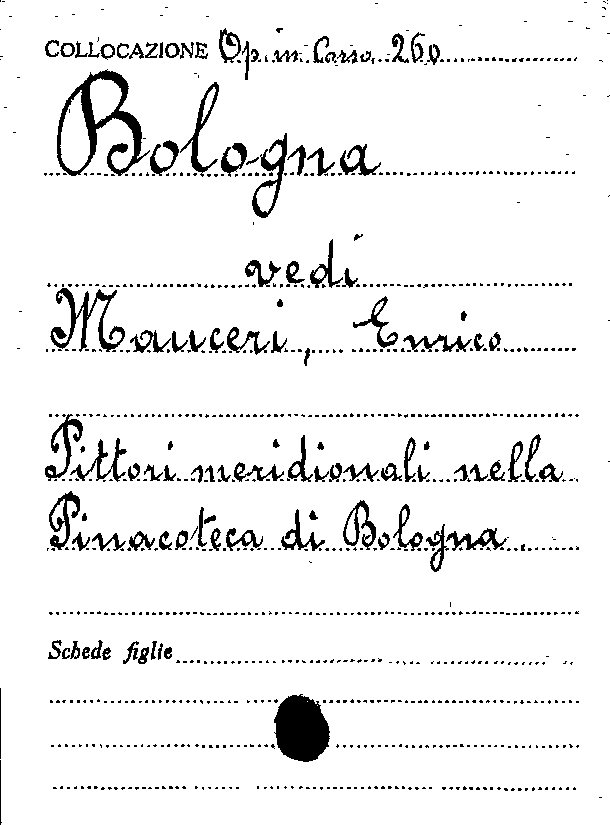 COLLOCAZIONE Op. in Corso 260
Bologna
vedi
Mauceri, Enrico
Pittori meridionali nella
Pinacoteca di Bologna.
Schede figlie